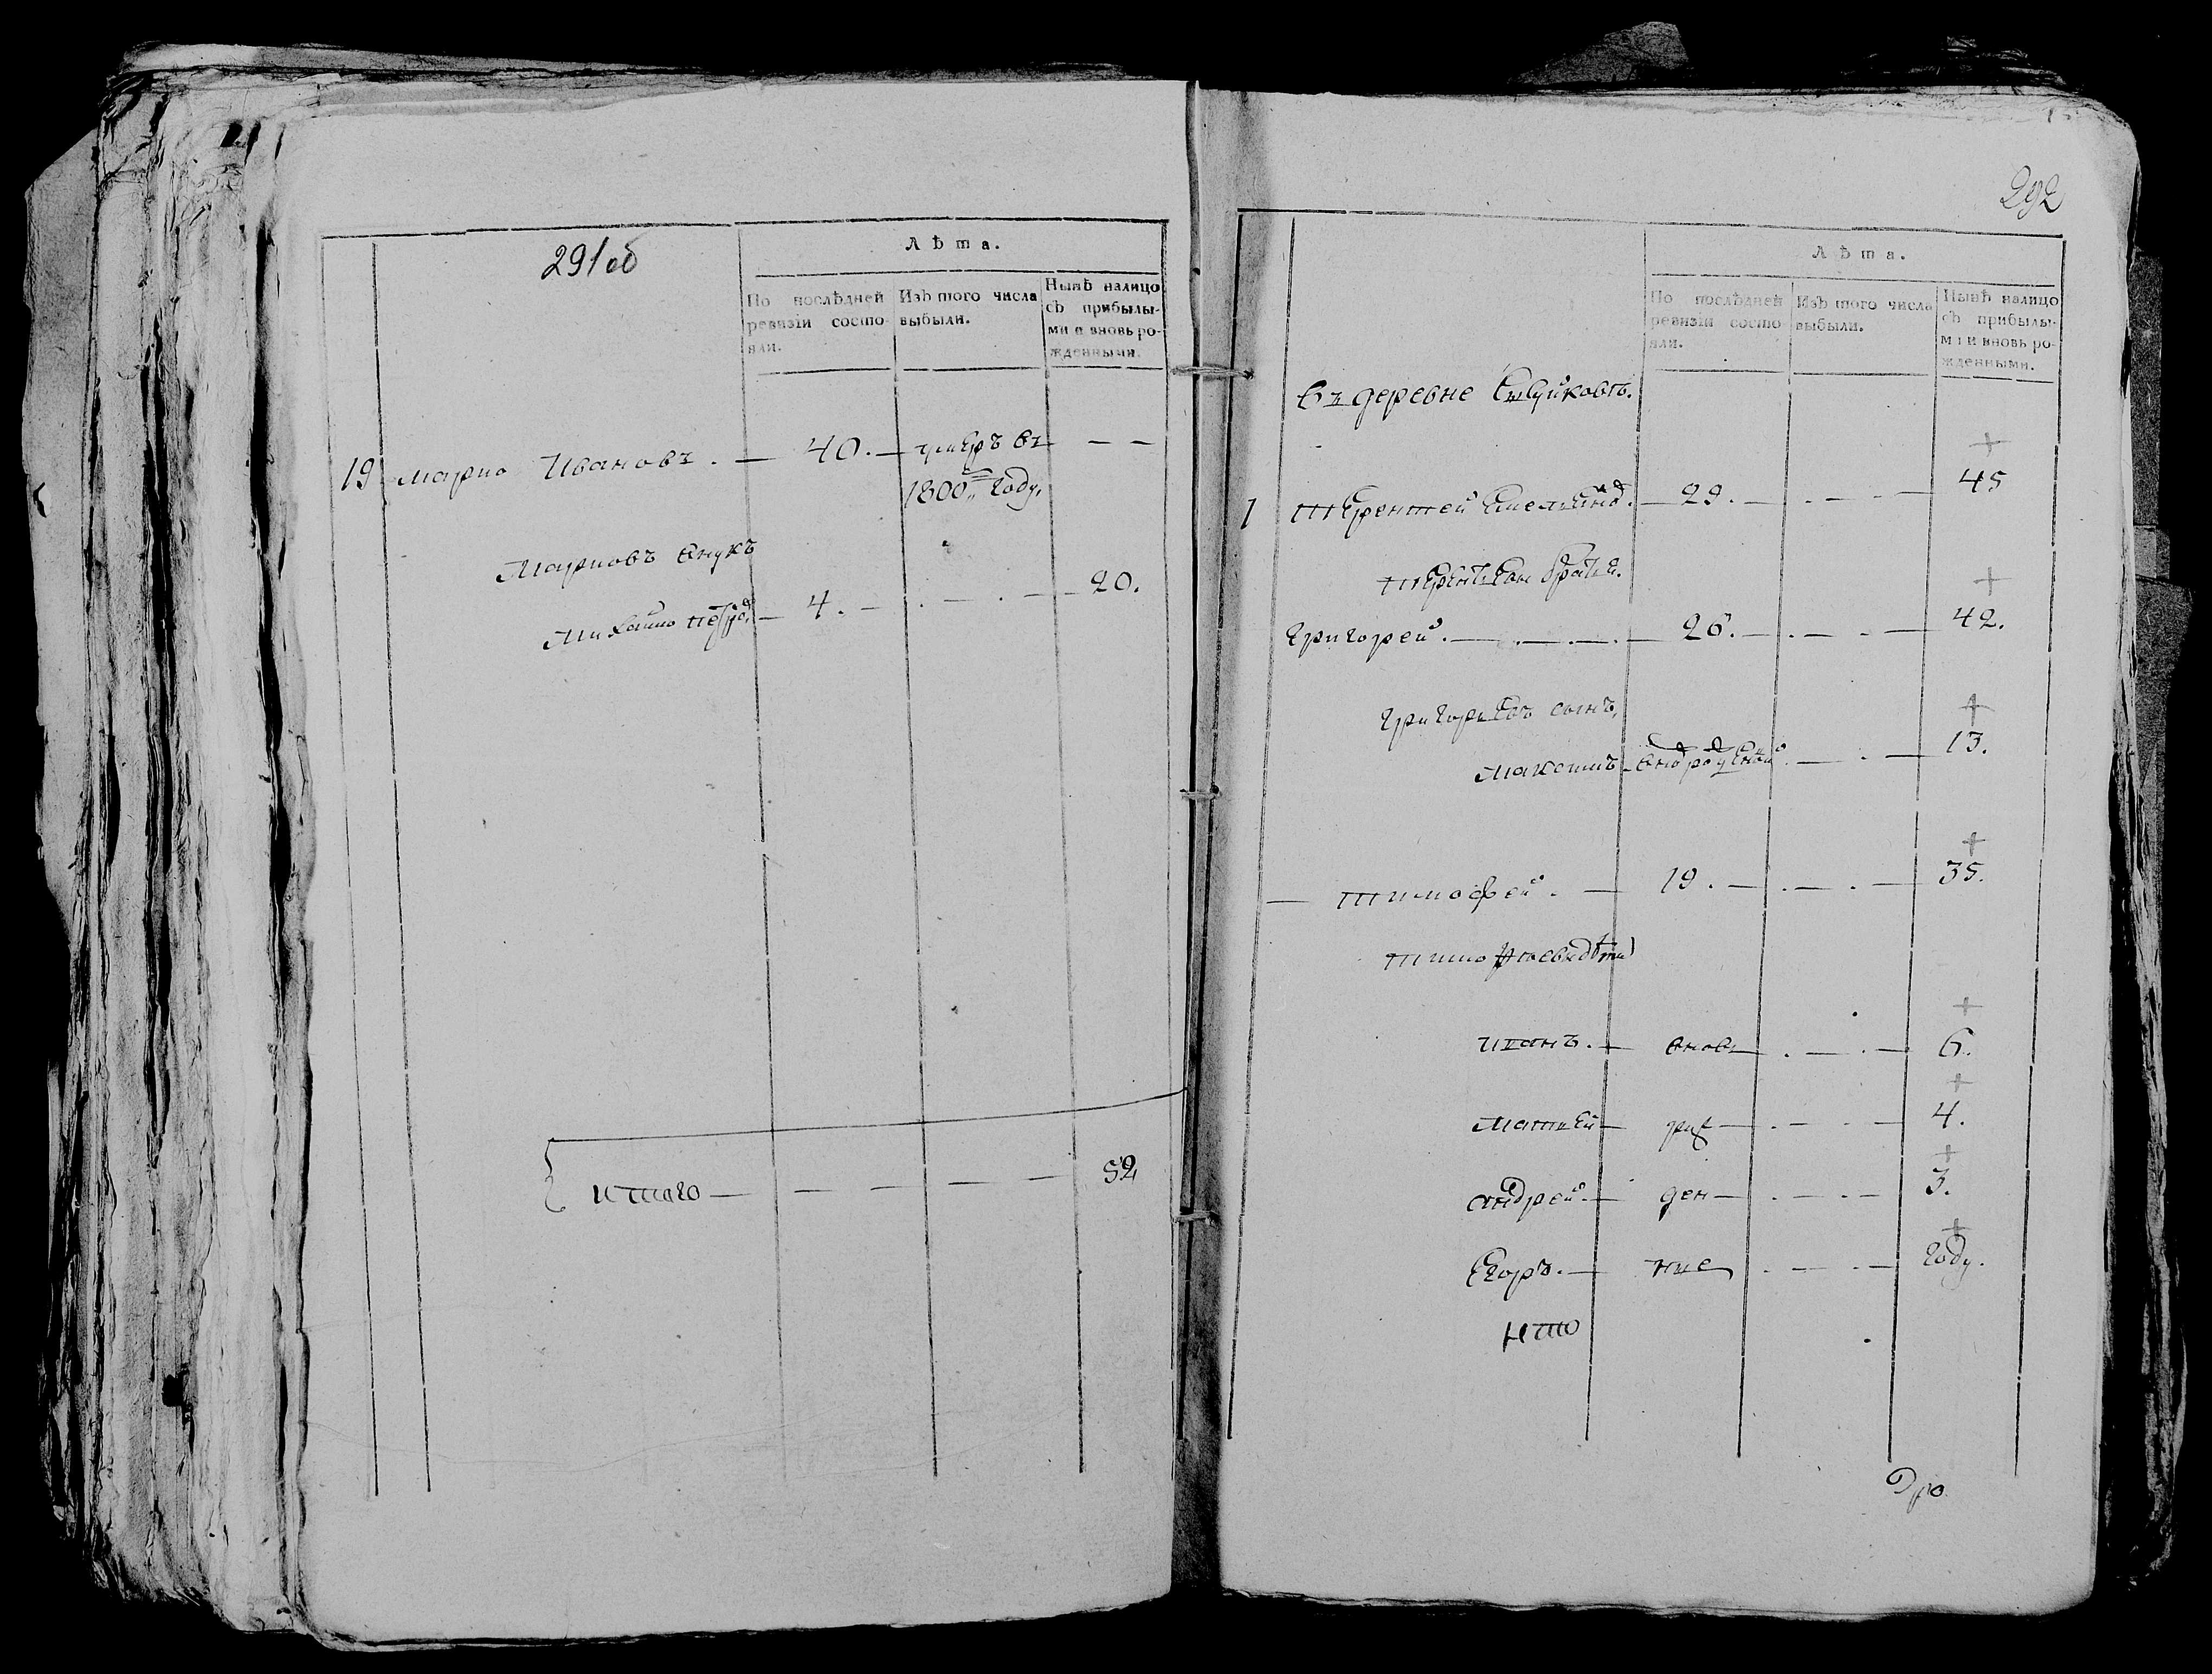 291об
Лѣта.
По послѣдней ревизіи состояли.
Изъ того числа выбыли.
Нынѣ налицо съ прибылыми и вновь рожденными.
19 марко Ивановъ. — 40. — умеръ въ — —
1800 году.
Марковъ внукъ
Михайло петро — 4. — . — . — 20.
итого — — — — — 52
292
Лѣта.
По послѣдней ревизіи состояли.
Изъ того числа выбыли.
Нынѣ налицо съ прибылыми и вновь рожденными.
въ деревне
+
1 терентей — 29. — . — . — 45
братья.
+
григорей. — . — . — 26. — . — . — 42.
григорьевъ сынъ,
+
максимъ — 13.
+
— тимофей. — 19. — . — . — 35.
тимофеевы дети
+
иванъ. — вновь — . — . — 6.
+
матвей — рож — . — . — 4.
+
андрей. — ден — . — . — 3.
+
Егоръ. — ные — . — . — году.